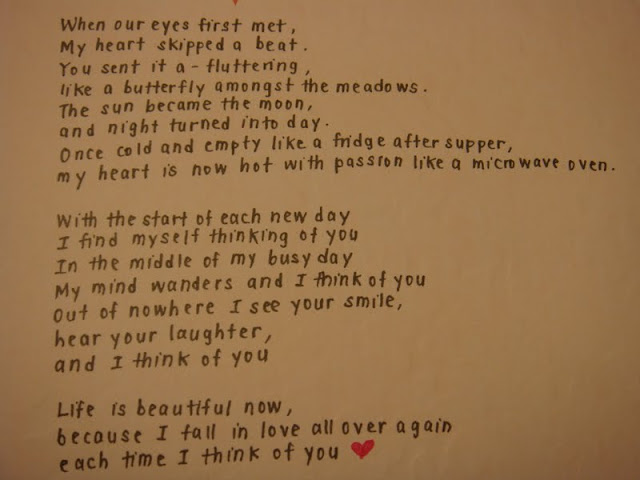 When our eyes first met,
My heart skipped a beat.
You sent it a-fluttering,
like a butterfly amongst the meadows.
The sun became the moon,
and night turned into day.
Once cold and empty like a fridge after supper,
my heart is now hot with passion like a microwave oven.
With the start of each new day
I find myself thinking of you
In the middle of my busy day
My mind wanders and I think of you
Out of nowhere I see your smile,
hear your laughter,
and I think of you
Life is beautiful now,
because I fall in love all over again
each time I think of you ❤